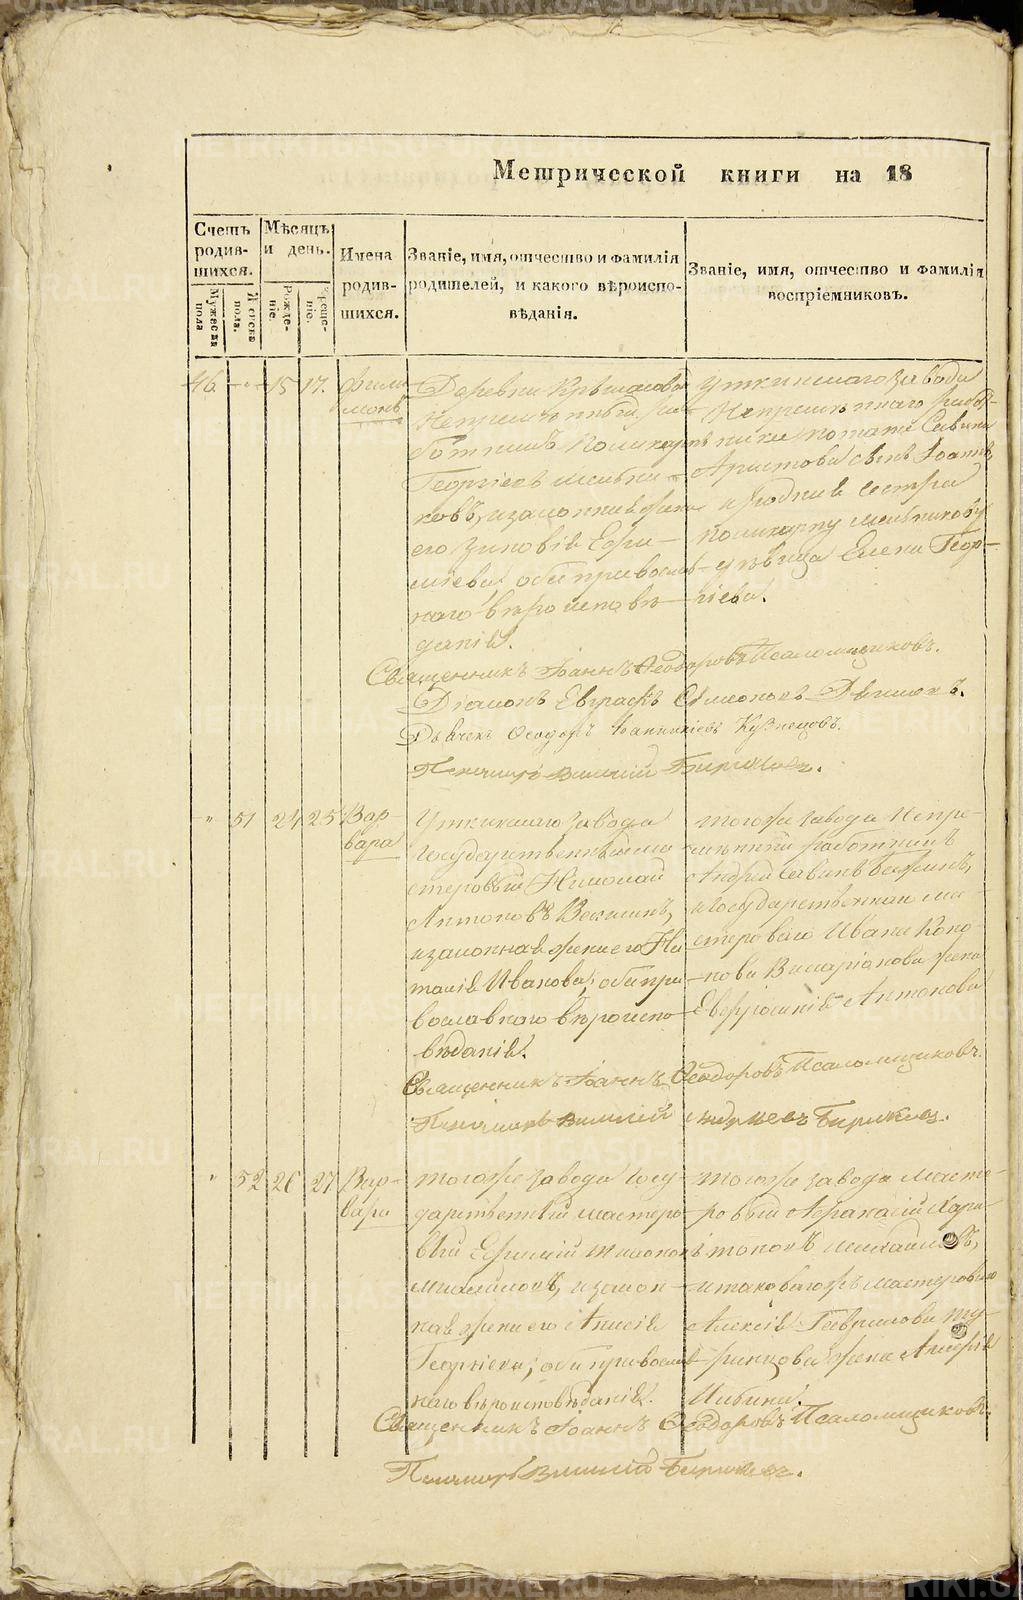 Метрической книги на 18
Счетъ родив-шихся.
Мужеска пола
Женска пола.
Мѣсяцъ и день.
Рожде-ніе.
Креще-ніе.
Имена родив-шихся.
Званіе, имя, отчество и фамилія родителей, и какого вѣроиспо-вѣданія.
Званіе, имя, отчество и фамилія воспріемниковъ.
46 — " — 15 17. Фили-
монъ
Деревни
Непремѣнный ра-
ботникъ Поликарпъ
Георгіевъ Мельни-
ковъ, и законная жена
его Зиновія Ефи-
міева, оба православ-
наго вѣроисповѣ-
данія.
Уткинскаго завода
Непремѣннаго работ-
ника Савина
Аристова сынъ Іоаннъ,
и родная сестра
Поликарпу Мельникову
дѣвица Елена Геор-
гіева.
Священникъ Іоаннъ Ѳеодоровъ Псаломщиковъ.
Діаконъ Евграфъ Симоновъ
Дьячекъ Ѳеодоръ Іоанникіевъ Кузнецовъ.
Пономарь Василій Бирюковъ.
— " 51 24 25 Вар-
вара
Уткинскаго завода
Государственный ма-
стеровый Николай
Антоновъ
и законная жена его На-
талія Иванова; оба пра-
вославнаго вѣроиспо-
вѣданія.
тогоже завода Непре-
мѣнный работникъ
Андрей Савинъ
и Государственнаго ма-
стероваго Ивана Коно-
нова Иларіонова жена
Евфросинія Антонова
Священникъ Іоаннъ Ѳеодоровъ Псаломщиковъ.
Пономарь Василій Андреевъ Бирюковъ.
" 52 26 27 Вар-
вара
тогоже завода Госу-
дарственный мастеро-
вый Ефимій
Михайловъ, и закон-
ная жена его Анисія
Георгіева; оба православ-
наго вѣроисповѣданія.
тогоже завода масте-
ровый Аѳанасій Хари-
тоновъ Михайловъ,
и таковагожъ мастероваго
Алексія Гаврилова
жена
Священникъ Іоаннъ Ѳеодоровъ Псаломщиковъ.
Пономарь Василій Бирюковъ.
METRIKI.GASU-URAL.RU